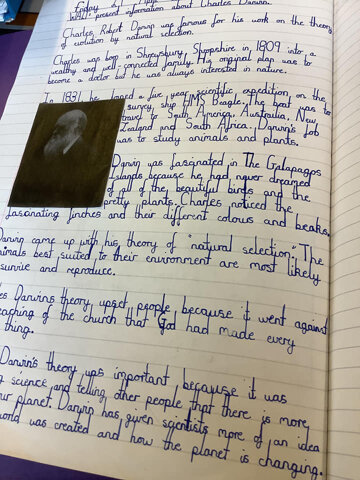 Today
will present information about Charles Darwin.
Charles Robert Darwin was famous for his work on the theory
of evolution by natural selection.
Charles was born in Shrewsbury, Shropshire in 1809 into a
wealthy and well-connected family. His original plan was to
become a doctor but he was always interested in nature.
In 1831, he joined a five year scientific expedition on the
survey ship HMS Beagle. The boat was to
travel to South America, Australia, New
Zealand and South Africa. Darwin's job
was to study animals and plants.
Darwin was fascinated in The Galapagos
Islands because he had never dreamed
of all of the beautiful birds and the
pretty plants. Charles noticed the
fascinating finches and their different colours and beaks.
Darwin came up with his theory of "natural selection." The
animals best suited to their environment are most likely
survive and reproduce.
Darwins theory upset people because it went against
teaching of the church that God had made every
thing.
Darwin's theory was important because it was
science and telling other people that there is more
our planet. Darwin has given scientists more of an idea
world was created and how the planet is changing.